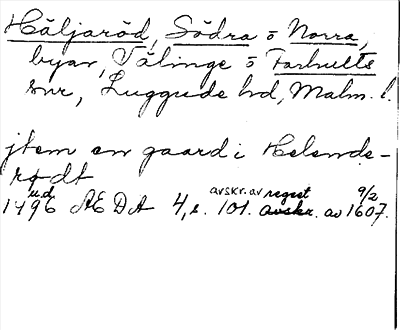 Häljaröd, Södra o Norra,
byar, Välinge o Farhults
snr, Luggude hd, Malm. l.
jtem en gaard i Helende-
rødt
u.d. avskr. av regest 9/2
1496 AEDA 4, s. 101. avskr. av 1607.